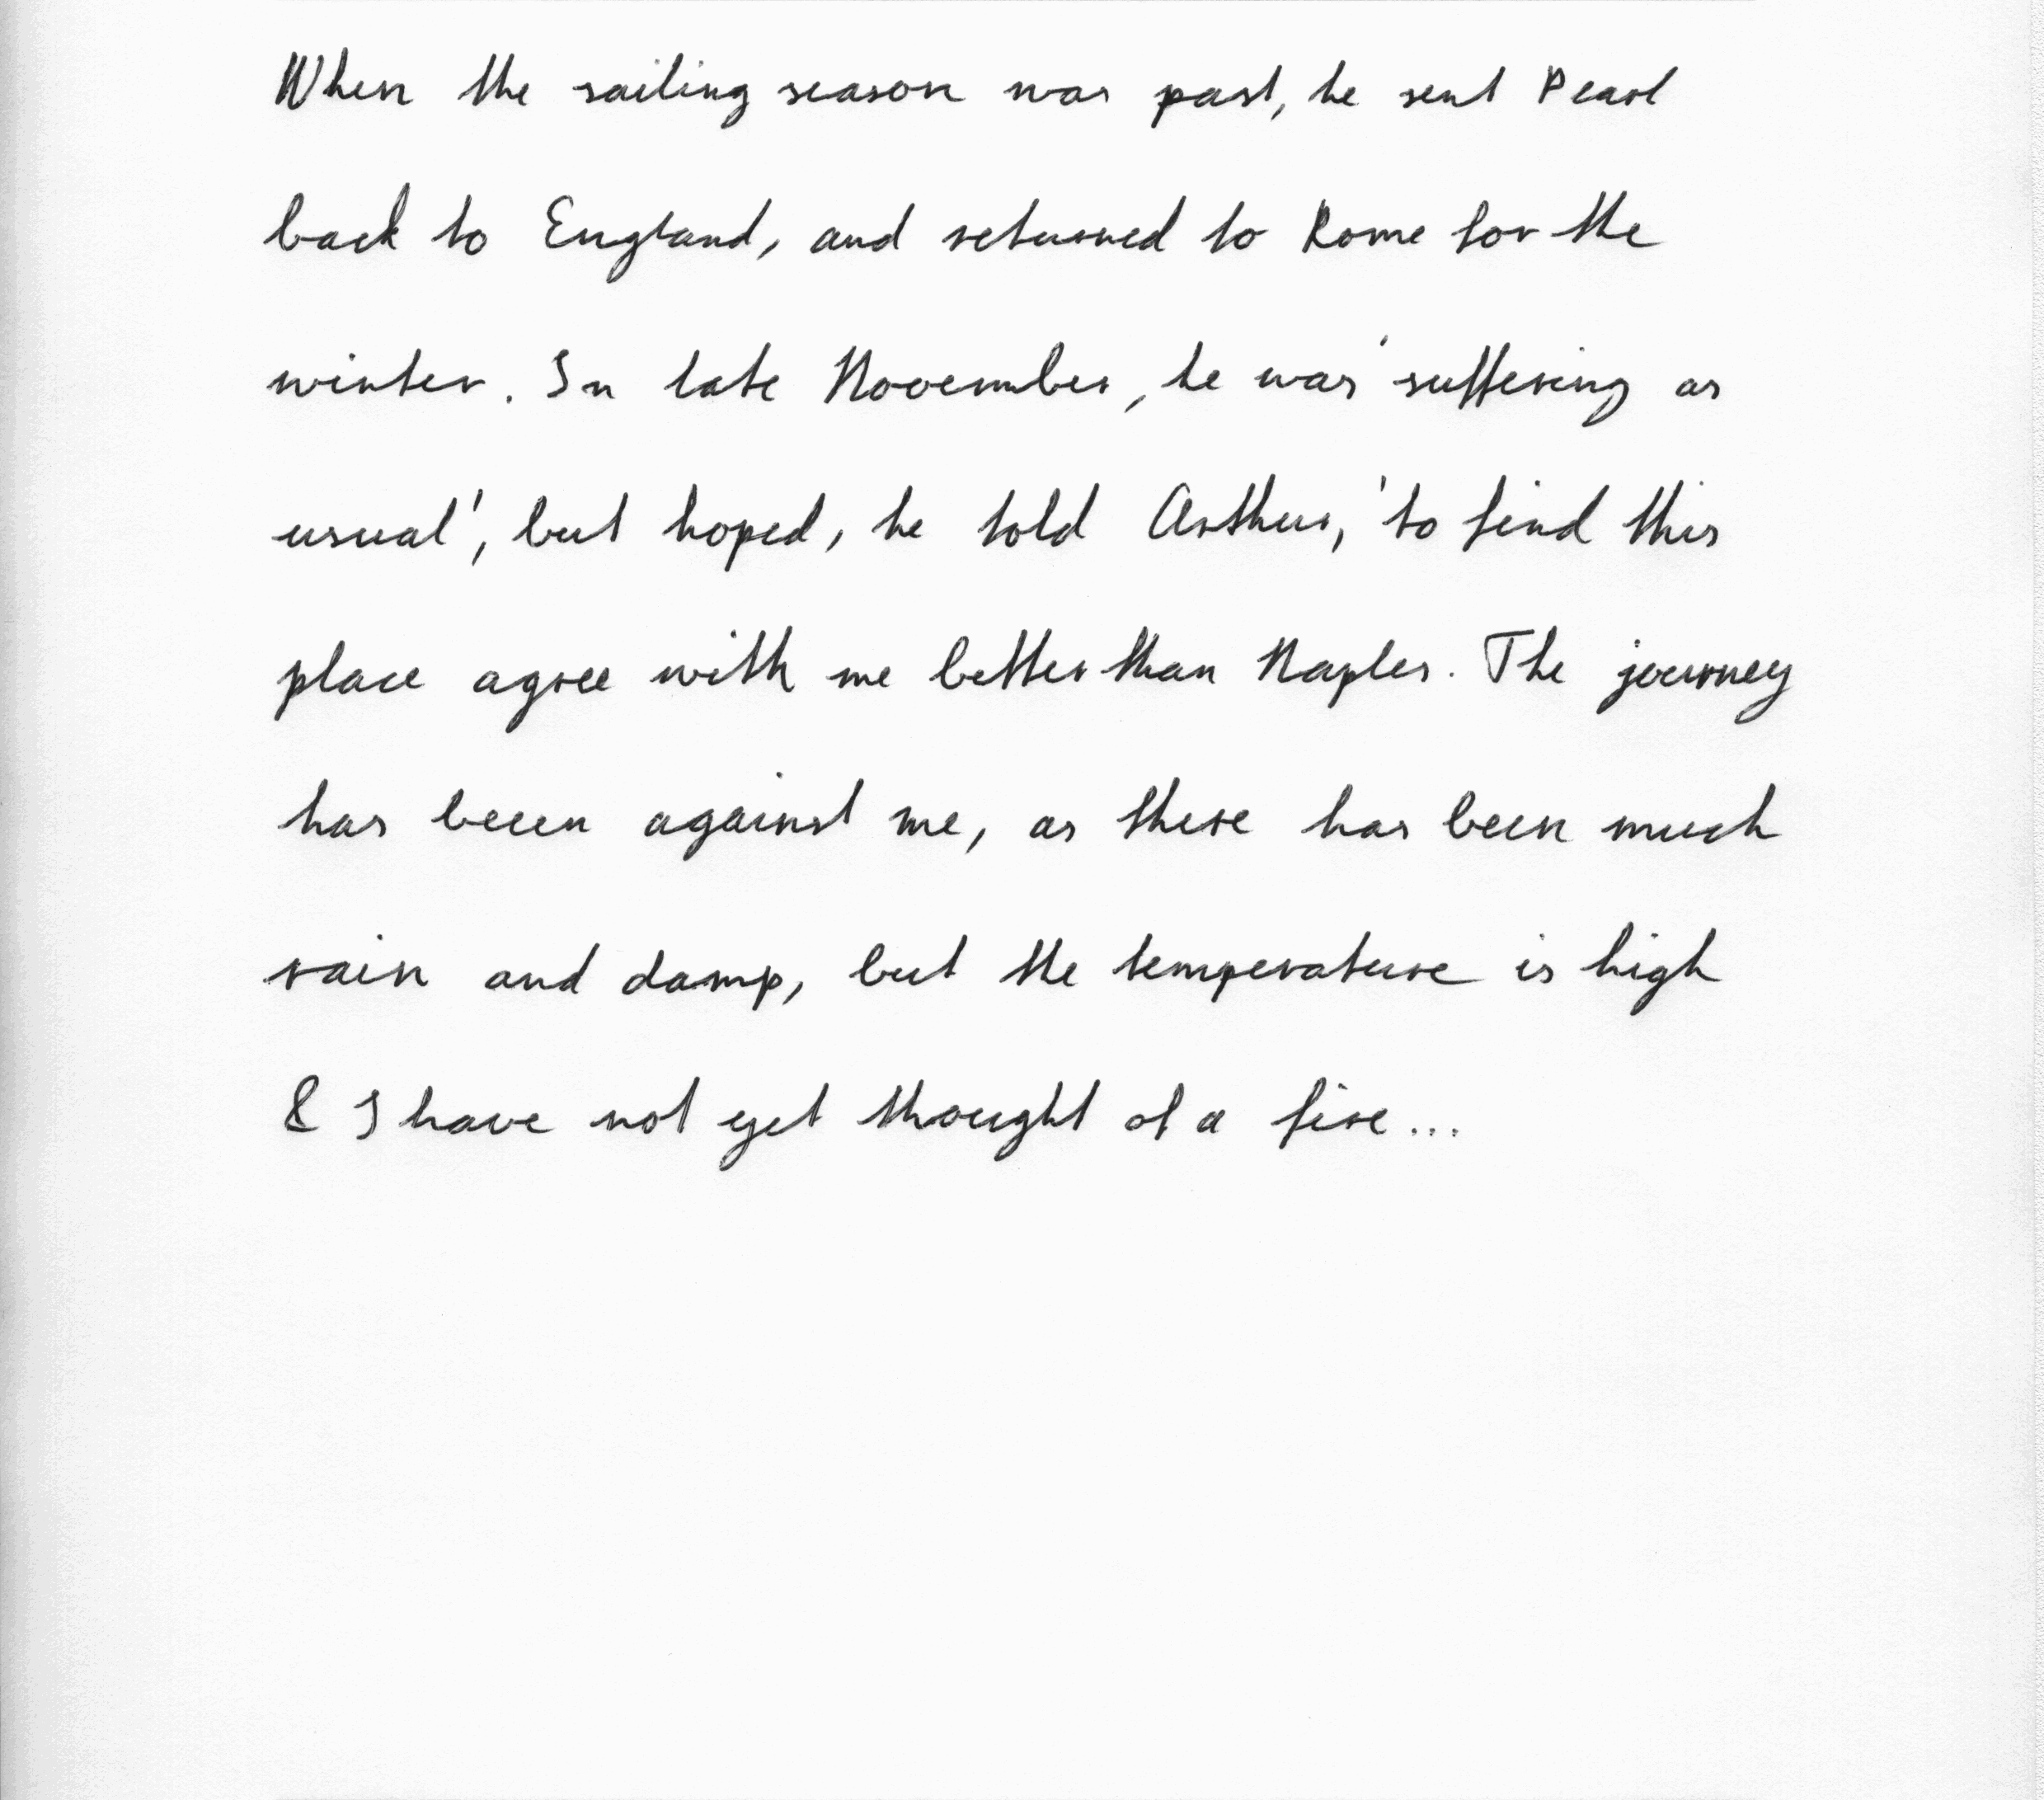 When the sailing season was past, he sent Pearl
back to England, and returned to Rome for the
winter. In late November, he was 'suffering as
usual', but hoped, he told Arthur, 'to find this
place agree with me better than Naples. The journey
has been against me, as there has been much
rain and damp, but the temperature is high
& I have not yet thought of a fire...